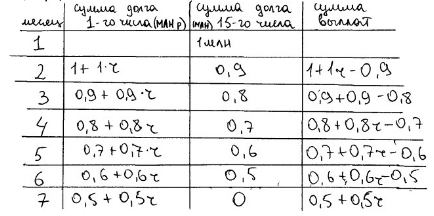 месец сумма долга 1-го числа (млн р) сумма долга (млн) 15-го числа сумма выплат
1 1 млн
2 1 + 1·r 0,9 1 + 1r - 0,9
3 0,9 + 0,9·r 0,8 0,9 + 0,9 - 0,8
4 0,8 + 0,8r 0,7 0,8 + 0,8r - 0,7
5 0,7 + 0,7·r 0,6 0,7 + 0,7r - 0,6
6 0,6 + 0,6r 0,5 0,6 + 0,6r - 0,5
7 0,5 + 0,5r 0 0,5 + 0,5r